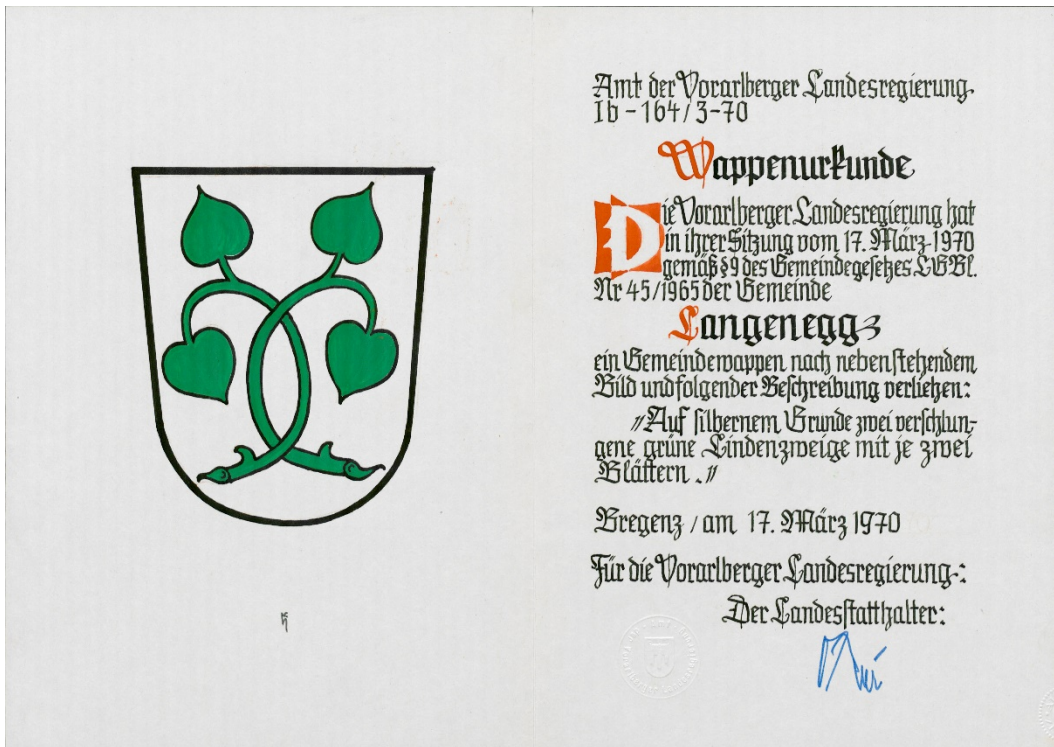 Amt der Vorarlberger Landesregierung
Ib – 164/3-70
Wappenurkunde
Die Vorarlberger Landesregierung hat
in ihrer Sitzung vom 17. März 1970
gemäß § 9 des Gemeindegesetzes LGBl.
Nr 45/1965 der Gemeinde
Langenegg
ein Gemeindewappen nach nebenstehendem
Bild und folgender Beschreibung verliehen:
"Auf silbernem Grunde zwei verschlun-
gene grüne Lindenzweige mit je zwei
Blättern."
Bregenz, am 17. März 1970
Für die Vorarlberger Landesregierung:
Der Landesstatthalter: